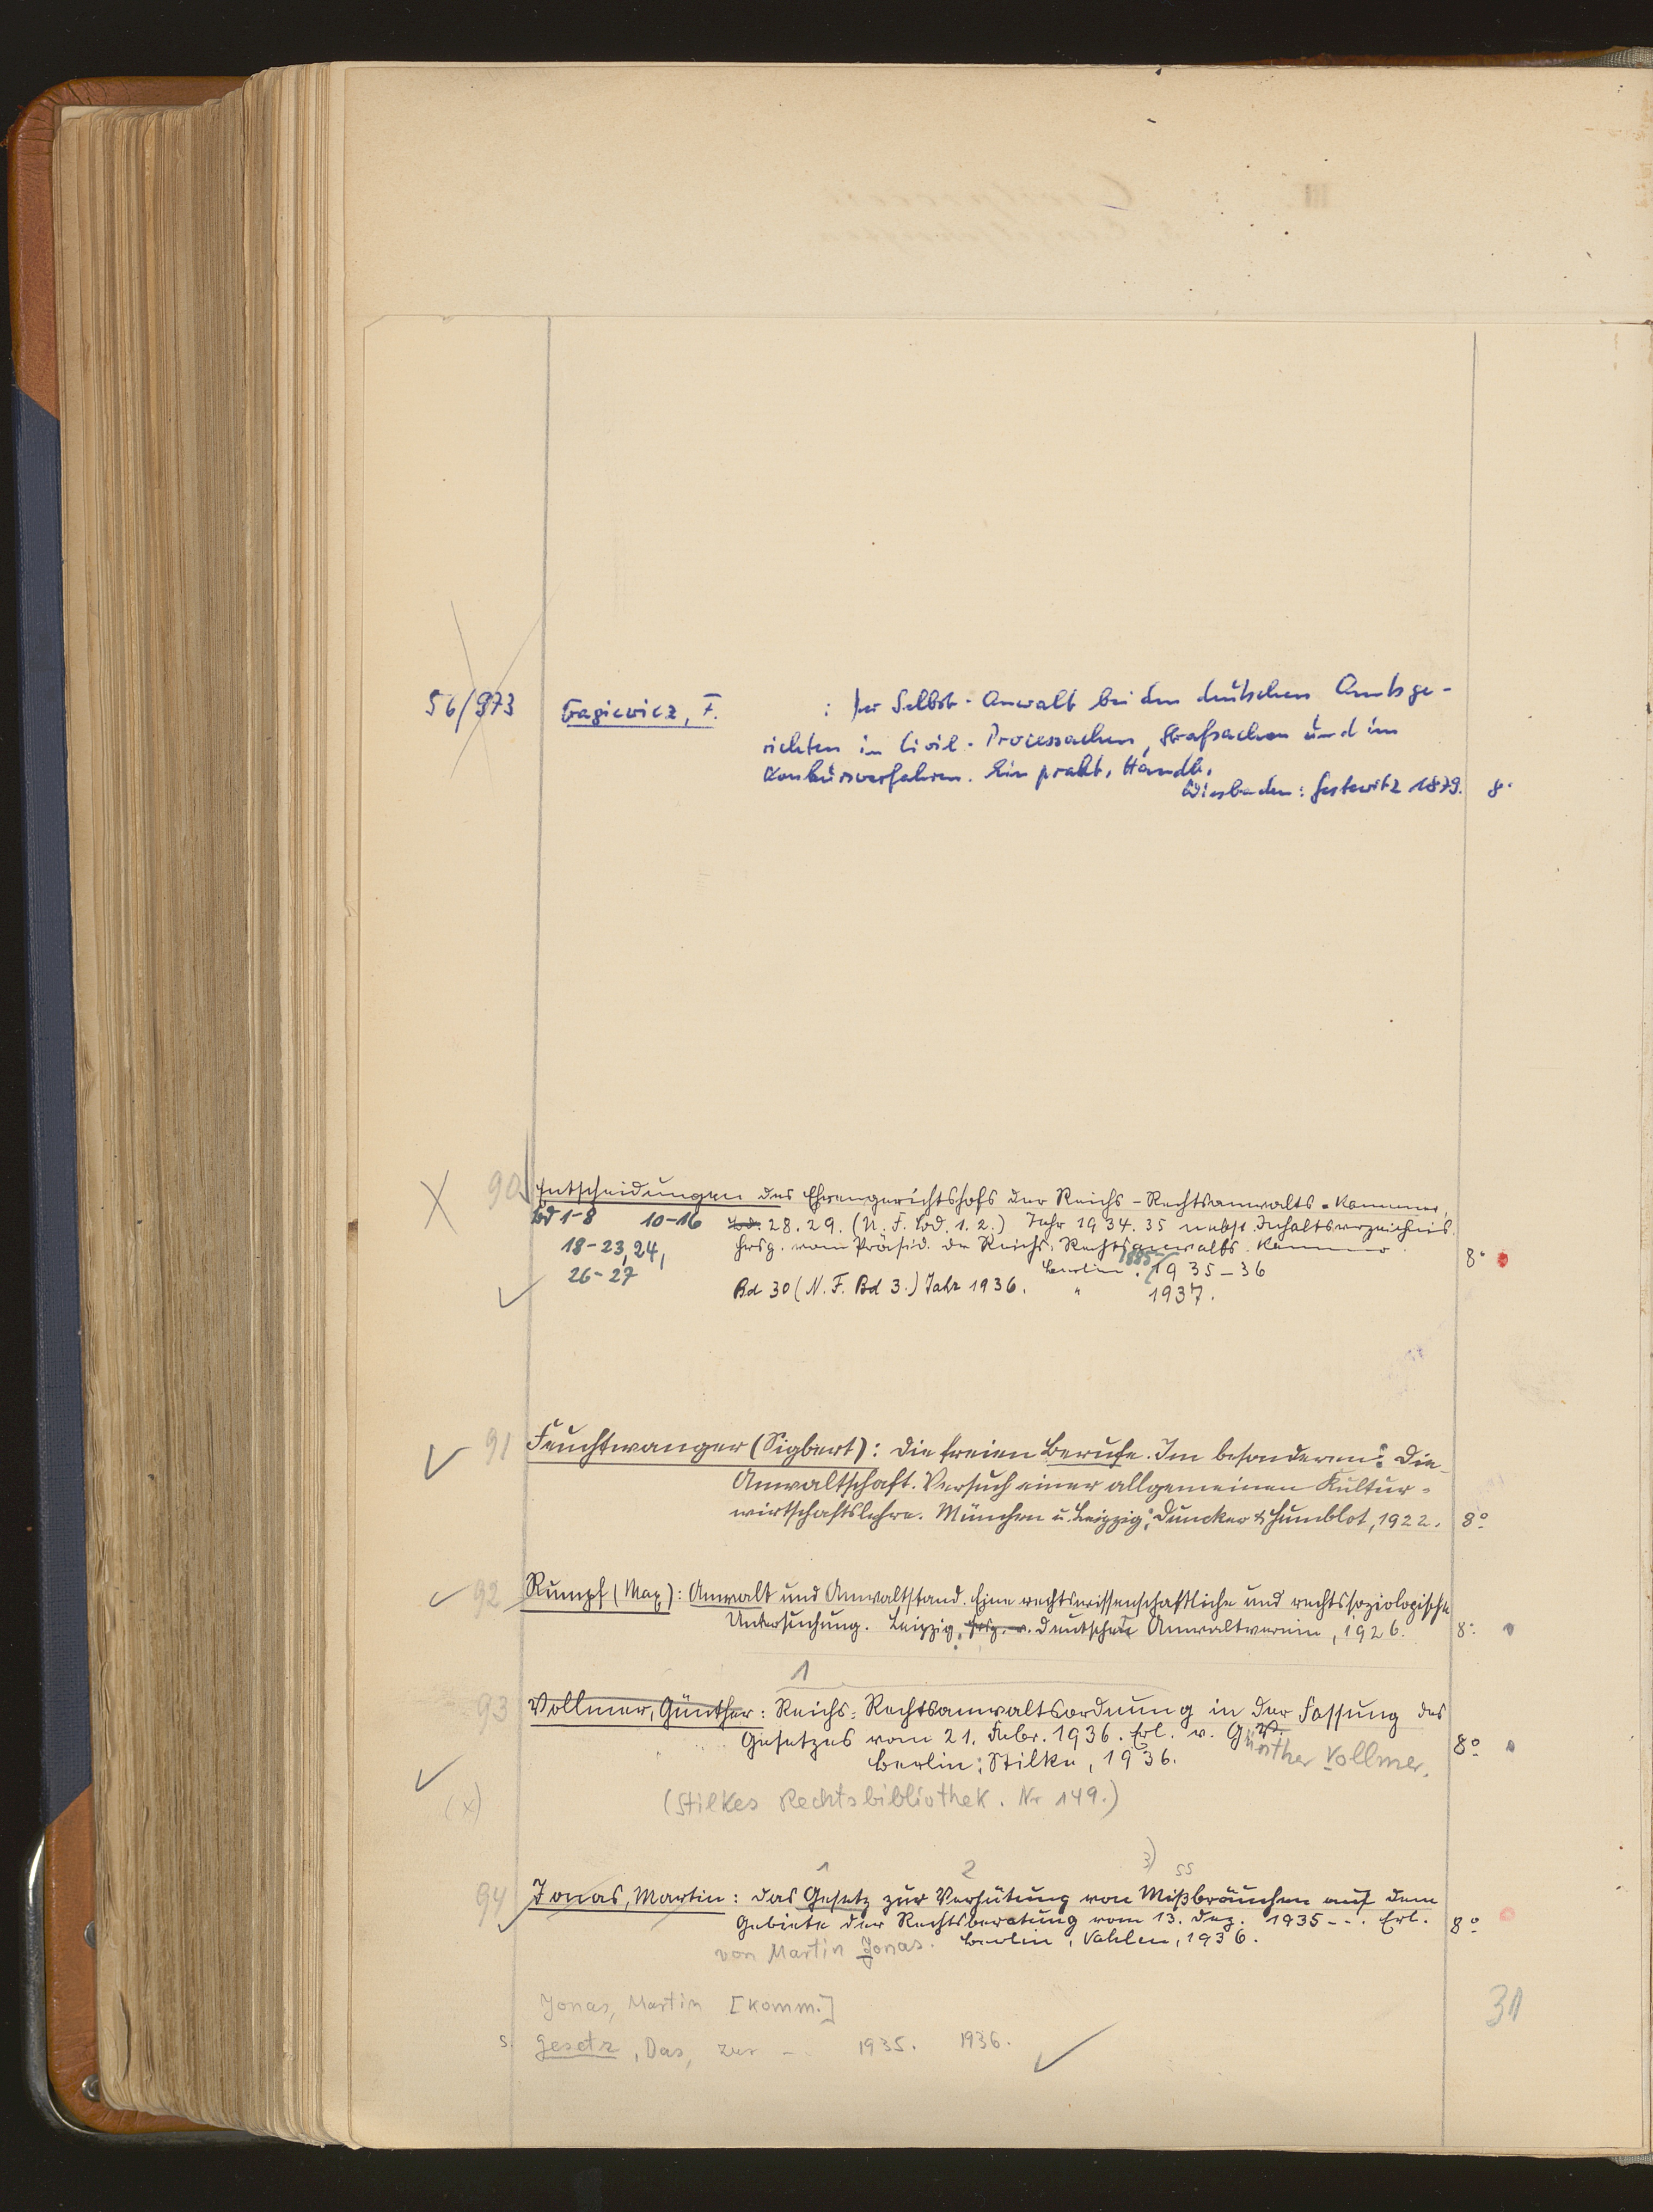 56/973 Gagiewicz, F. : Der Selbst-Anwalt bei den deutschen Amtsge-
richten in Civil-Processachen, Strafsachen und im
Konkursverfahren. Ein prakt. Handb.
Wiesbaden: Gestewitz 1879. 8°
90 Entscheidungen des Ehrengerichtshofs der Reichs-Rechtsanwalts-Kammer,
Bd 1-8 10-16 Bd. 28. 29. (N. F. Bd. 1. 2.) Jahr 1934. 35 nebst Inhaltsverzeichnis.
18-23, 24, Hrsg. vom Präsid. der Reichs-Rechtsanwalts-Kammer. 8°
26-27 Berlin: 1885- 1935-36
Bd 30 (N. F. Bd 3.) Jahr 1936. " 1937.
91 Feuchtwanger (Sigbert): Die freien Berufe. Im besonderen: Die
Anwaltschaft. Versuch einer allgemeinen Kultur-
wirtschaftslehre. München u. Leipzig: Duncker & Humblot, 1922. 8°
92 Rumpf (Max): Anwalt und Anwaltstand. Eine rechtswissenschaftliche und rechtssoziologische
Untersuchung. Leipzig: hrsg. v. Deutscher Anwaltverein, 1926. 8°
1
93 Vollmer, Günther: Reichs-Rechtsanwaltsordnung in der Fassung des
Gesetzes vom 21. Febr. 1936. Erl. v. Günther Vollmer. 8°
Berlin: Stilke, 1936.
(x) (Stilkes Rechtsbibliothek. Nr 149.)
1 2 3) ss
94 Jonas, Martin: Das Gesetz zur Verhütung von Mißbräuchen auf dem
Gebiete der Rechtsberatung vom 13. Dez. 1935 - - . Erl. 8°
von Martin Jonas. Berlin, Vahlen, 1936.
Jonas, Martin [Komm.]
31
s. Gesetz, Das, zur - 1935. 1936.